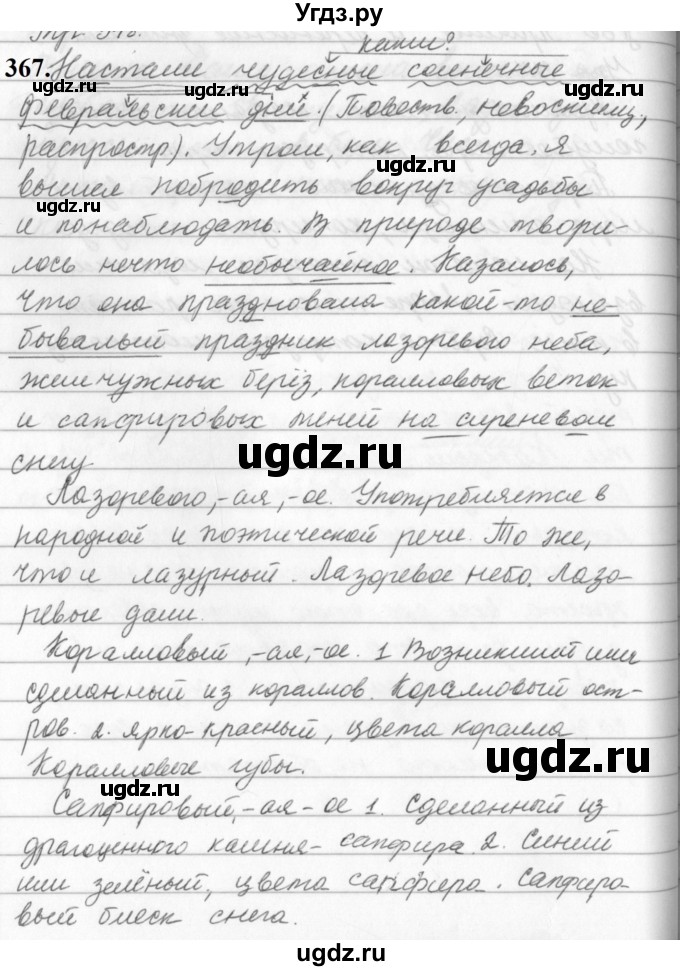 Угдз.ру
какие?
367. Настали чудесные солнечные
февральские дни. (Повеств., невосклиц.,
распростр.). Утром, как всегда, я
вышел побродить вокруг усадьбы
и понаблюдать. В природе твори-
лось нечто необычайное. Казалось,
что она праздновала какой-то не-
бывалый праздник лазоревого неба,
жемчужных берёз, коралловых веток
и сапфировых теней на сиреневом
снегу
Лазоревого, -ая, -ое. Употребляется в
народной и поэтической речи. То же,
что и лазурный. Лазоревое небо. Лазо-
ревые дали.
Коралловый, -ая, -ое. 1 Возникший или
сделанный из кораллов. Коралловый ост-
ров. 2. Ярко-красный, цвета коралла
Коралловые губы.
Сапфировый, -ая -ое 1. Сделанный из
драгоценного камня - сапфира. 2. Синий
или зелёный, цвета сапфира. Сапфиро-
вый блеск снега.
ugdz.ru
ugdz.ru
ugdz.ru
ugdz.ru
ugdz.ru
ugdz.ru
ugdz.ru
ugdz.ru
ugdz.ru
ugdz.ru
ugdz.ru